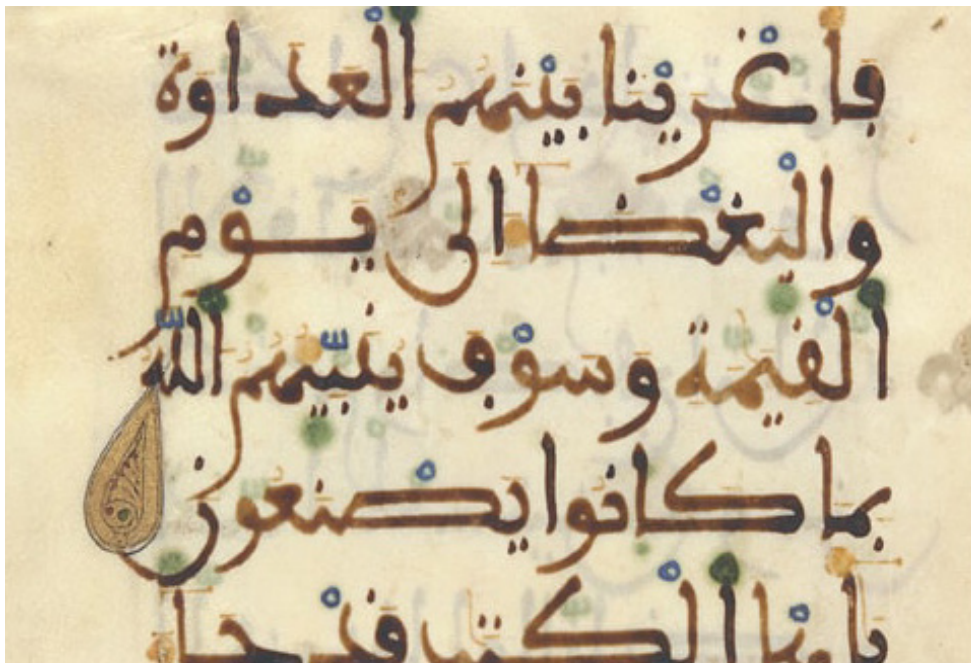 فأغرينا بينهم العداوة
والبغضا الى يوم
القيمة وسوف ينبيهم الله
بما كانوا يصنعون
ياهل الكتب قد جا